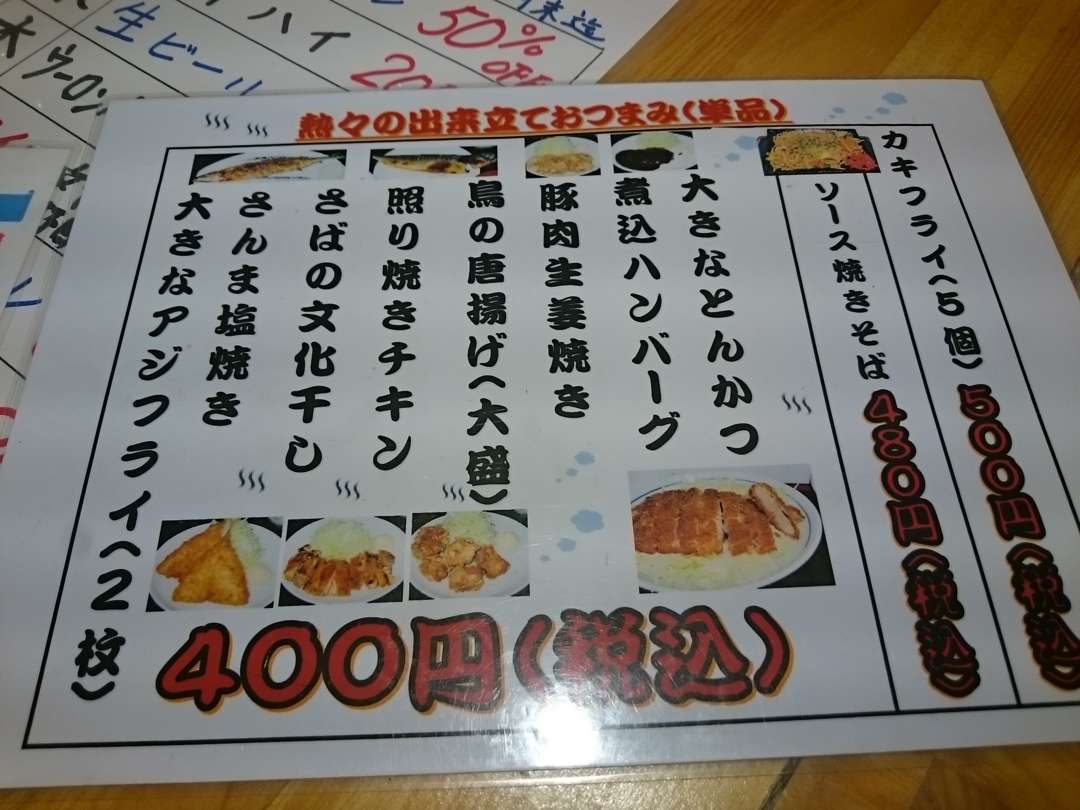 ハイ
50%
OFF
生ビール
ウーロン
熱々の出来立ておつまみ(単品)
カキフライ(5個) 500円(税込)
ソース焼きそば 480円(税込)
大きなとんかつ
煮込ハンバーグ
豚肉生姜焼き
鳥の唐揚げ(大盛)
照り焼きチキン
さばの文化干し
さんま塩焼き
大きなアジフライ(2枚)
400円(税込)